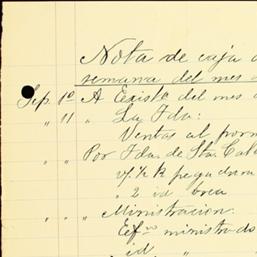 Nota de caja d
semana del mes d
Sep. 1º A Existe del mes a
" 11 " La Fda:
Ventas al porm
" " Por Fda. de Sta. Cat
v/. ½ k pegadura
" 2 id
" " " Ministracion:
Ef/ºs ministrado
id "